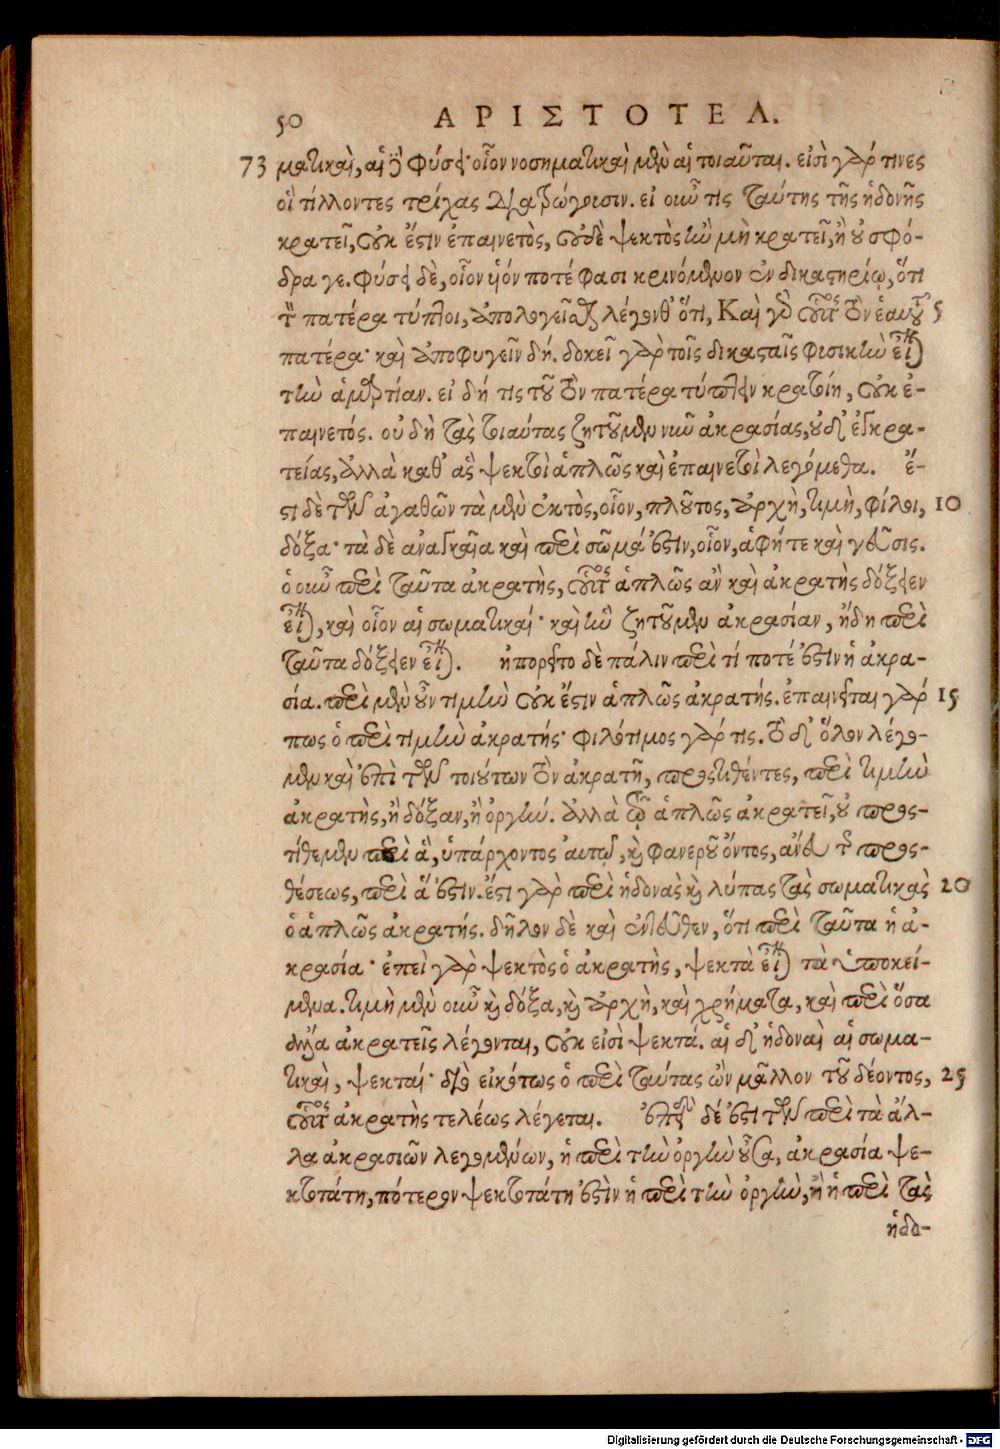 50 ΑΡΙΣΤΟΤΕΛ.
73 ματικαὶ, αἱ δὲ φύσει· οἷον νοσηματικαὶ μὲν αἱ τοιαῦται. εἰσὶ γάρ τινες
οἳ τίλλοντες τρίχας διατρώγουσιν. εἰ οὖν τις ταύτης τῆς ἡδονῆς
κρατεῖ, οὐκ ἔστιν ἐπαινετὸς, οὐδὲ ψεκτὸς ἢν μὴ κρατεῖ, ἢ οὐ σφό-
δρα γε. φύσει δὲ, οἷον υἱόν ποτέ φασι κρινόμενον ἐν δικαστηρίῳ, ὅτι
τὸν πατέρα τύπτοι, ἀπολογεῖσθαι λέγονθ' ὅτι, Καὶ γὰρ οὗτος τὸν ἑαυτοῦ 5
πατέρα· καὶ ἀποφυγεῖν δή. δοκεῖ γὰρ τοῖς δικασταῖς φισικὴν εἶναι
τὴν ἁμαρτίαν. εἰ δή τις τοῦ τὸν πατέρα τύπτειν κρατοίη, οὐκ ἐ-
παινετός. οὐ δὴ τὰς τοιαύτας ζητοῦμεν νῦν ἀκρασίας, οὐδ' ἐγκρα-
τείας, ἀλλὰ καθ' ἃς ψεκτοὶ ἁπλῶς καὶ ἐπαινετοὶ λεγόμεθα. ἔ-
στι δὲ τῶν ἀγαθῶν τὰ μὲν ἐκτὸς, οἷον, πλοῦτος, ἀρχὴ, τιμὴ, φίλοι, 10
δόξα· τὰ δὲ ἀναγκαῖα καὶ περὶ σῶμά ἐστιν, οἷον, ἁφή τε καὶ γεῦσις.
ὁ οὖν περὶ ταῦτα ἀκρατὴς, οὗτος ἁπλῶς ἂν καὶ ἀκρατὴς δόξειεν
εἶναι, καὶ οἷον αἱ σωματικαί· καὶ ἣν ζητοῦμεν ἀκρασίαν, ἤδη περὶ
ταῦτα δόξειεν εἶναι. ἠπορεῖτο δὲ πάλιν περὶ τί ποτέ ἐστιν ἡ ἀκρα-
σία. περὶ μὲν οὖν τιμὴν οὐκ ἔστιν ἁπλῶς ἀκρατής. ἐπαινεῖται γάρ 15
πως ὁ περὶ τιμὴν ἀκρατής· φιλότιμος γάρ τις. τὸ δ' ὅλον λέγο-
μεν καὶ ἐπὶ τῶν τοιούτων τὸν ἀκρατῆ, προστιθέντες, περὶ τιμὴν
ἀκρατὴς, ἢ δόξαν, ἢ ὀργήν. ἀλλὰ τῷ ἁπλῶς ἀκρατεῖ, οὐ προσ-
τίθεμεν περὶ ἃ, ὑπάρχοντος αὐτῷ, καὶ φανεροῦ ὄντος, ἄνευ τῆς προσ-
θέσεως, περὶ ἅ ἐστιν. ἔστι γὰρ περὶ ἡδονὰς καὶ λύπας τὰς σωματικὰς 20
ὁ ἁπλῶς ἀκρατής. δῆλον δὲ καὶ ἐντεῦθεν, ὅτι περὶ ταῦτα ἡ ἀ-
κρασία· ἐπεὶ γὰρ ψεκτὸς ὁ ἀκρατὴς, ψεκτὰ εἶναι τὰ ὑποκεί-
μενα. τιμὴ μὲν οὖν καὶ δόξα, καὶ ἀρχὴ, καὶ χρήματα, καὶ περὶ ὅσα
ἄλλα ἀκρατεῖς λέγονται, οὐκ εἰσὶ ψεκτά. αἱ δ' ἡδοναὶ αἱ σωμα-
τικαὶ, ψεκταί· διὸ εἰκότως ὁ περὶ ταύτας ὢν μᾶλλον τοῦ δέοντος, 25
οὗτος ἀκρατὴς τελέως λέγεται. ἐπειδὴ δέ ἐστι τῶν περὶ τὰ ἄλ-
λα ἀκρασιῶν λεγομένων, ἡ περὶ τὴν ὀργὴν οὖσα, ἀκρασία ψε-
κτοτάτη, πότερον ψεκτοτάτη ἐστὶν ἡ περὶ τὴν ὀργὴν, ἢ ἡ περὶ τὰς
ἡδο-
Digitalisierung gefördert durch die Deutsche Forschungsgemeinschaft - DFG